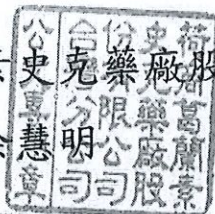 史克藥廠股
慧明
荷商葛蘭素
史克藥廠股
份有限公司
台灣分公司
公專章